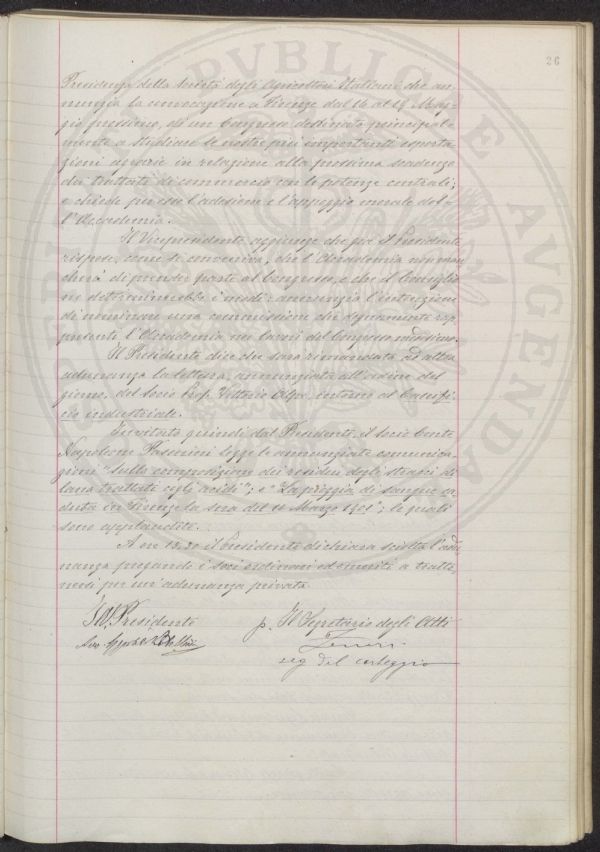 26
Presidenza della Società degli Agricoltori Italiani che an-
nunzia la convocazione a Firenze dal 16 al 19 Mag-
gio prossimo, di un Congresso destinato principal-
mente a studiare le nostre più importanti esporta-
zioni agrarie in relazione alla prossima scadenza
dei trattati di commercio con le potenze centrali;
e chiede per esso l'adesione e l'appoggio morale del-
l'Accademia.
Il Vicepresidente aggiunge che già il Presidente
rispose, come si conveniva, che l'Accademia non man-
cherà di prender parte al Congresso, e che il Consiglio
ne determinerebbe i modi: annunzia l'intenzione
di nominare una commissione che degnamente rap-
presenti l'Accademia nei lavori del Congresso medesimo.
Il Presidente dice che sarà rimandata ad altra
adunanza la lettura, annunziata all'ordine del
giorno, del Socio Prof. Vittorio Alpe, intorno al Caseifi-
cio industriale.
Invitato quindi dal Presidente, il socio Conte
Napoleone Passerini legge le annunziate comunica-
zioni "sulla composizione dei residui degli stracci di
lana trattati cogli acidi"; e "La pioggia di sangue ca-
duta in Firenze la sera del 10 Marzo 1901"; le quali
sono applaudite.
A ore 13,30 il Presidente dichiara sciolta l'adu-
nanza pregando i soci ordinari ed emeriti a tratte-
nersi per un'adunanza privata.
Il V. Presidente
p. Il Segretario degli Atti
seg. del carteggio
PVBLICAE
AVGENDAE